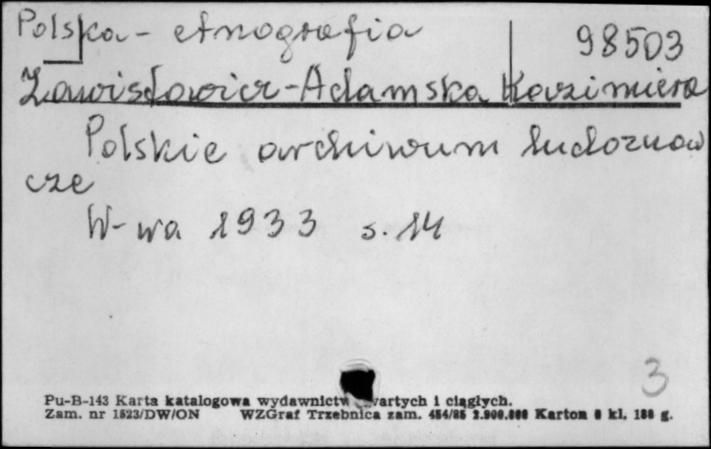 Polska - etnografia 98503
Zawistowicz-Adamska Kazimiera
Polskie archiwum ludoznaw
cze
W-wa 1933 s. 14
3
Pu-B-143 Karta katalogowa wydawnictw zwartych i ciągłych.
Zam. nr 1523/DW/ON WZGraf Trzebnica zam. 454/85 Karton kl. g.